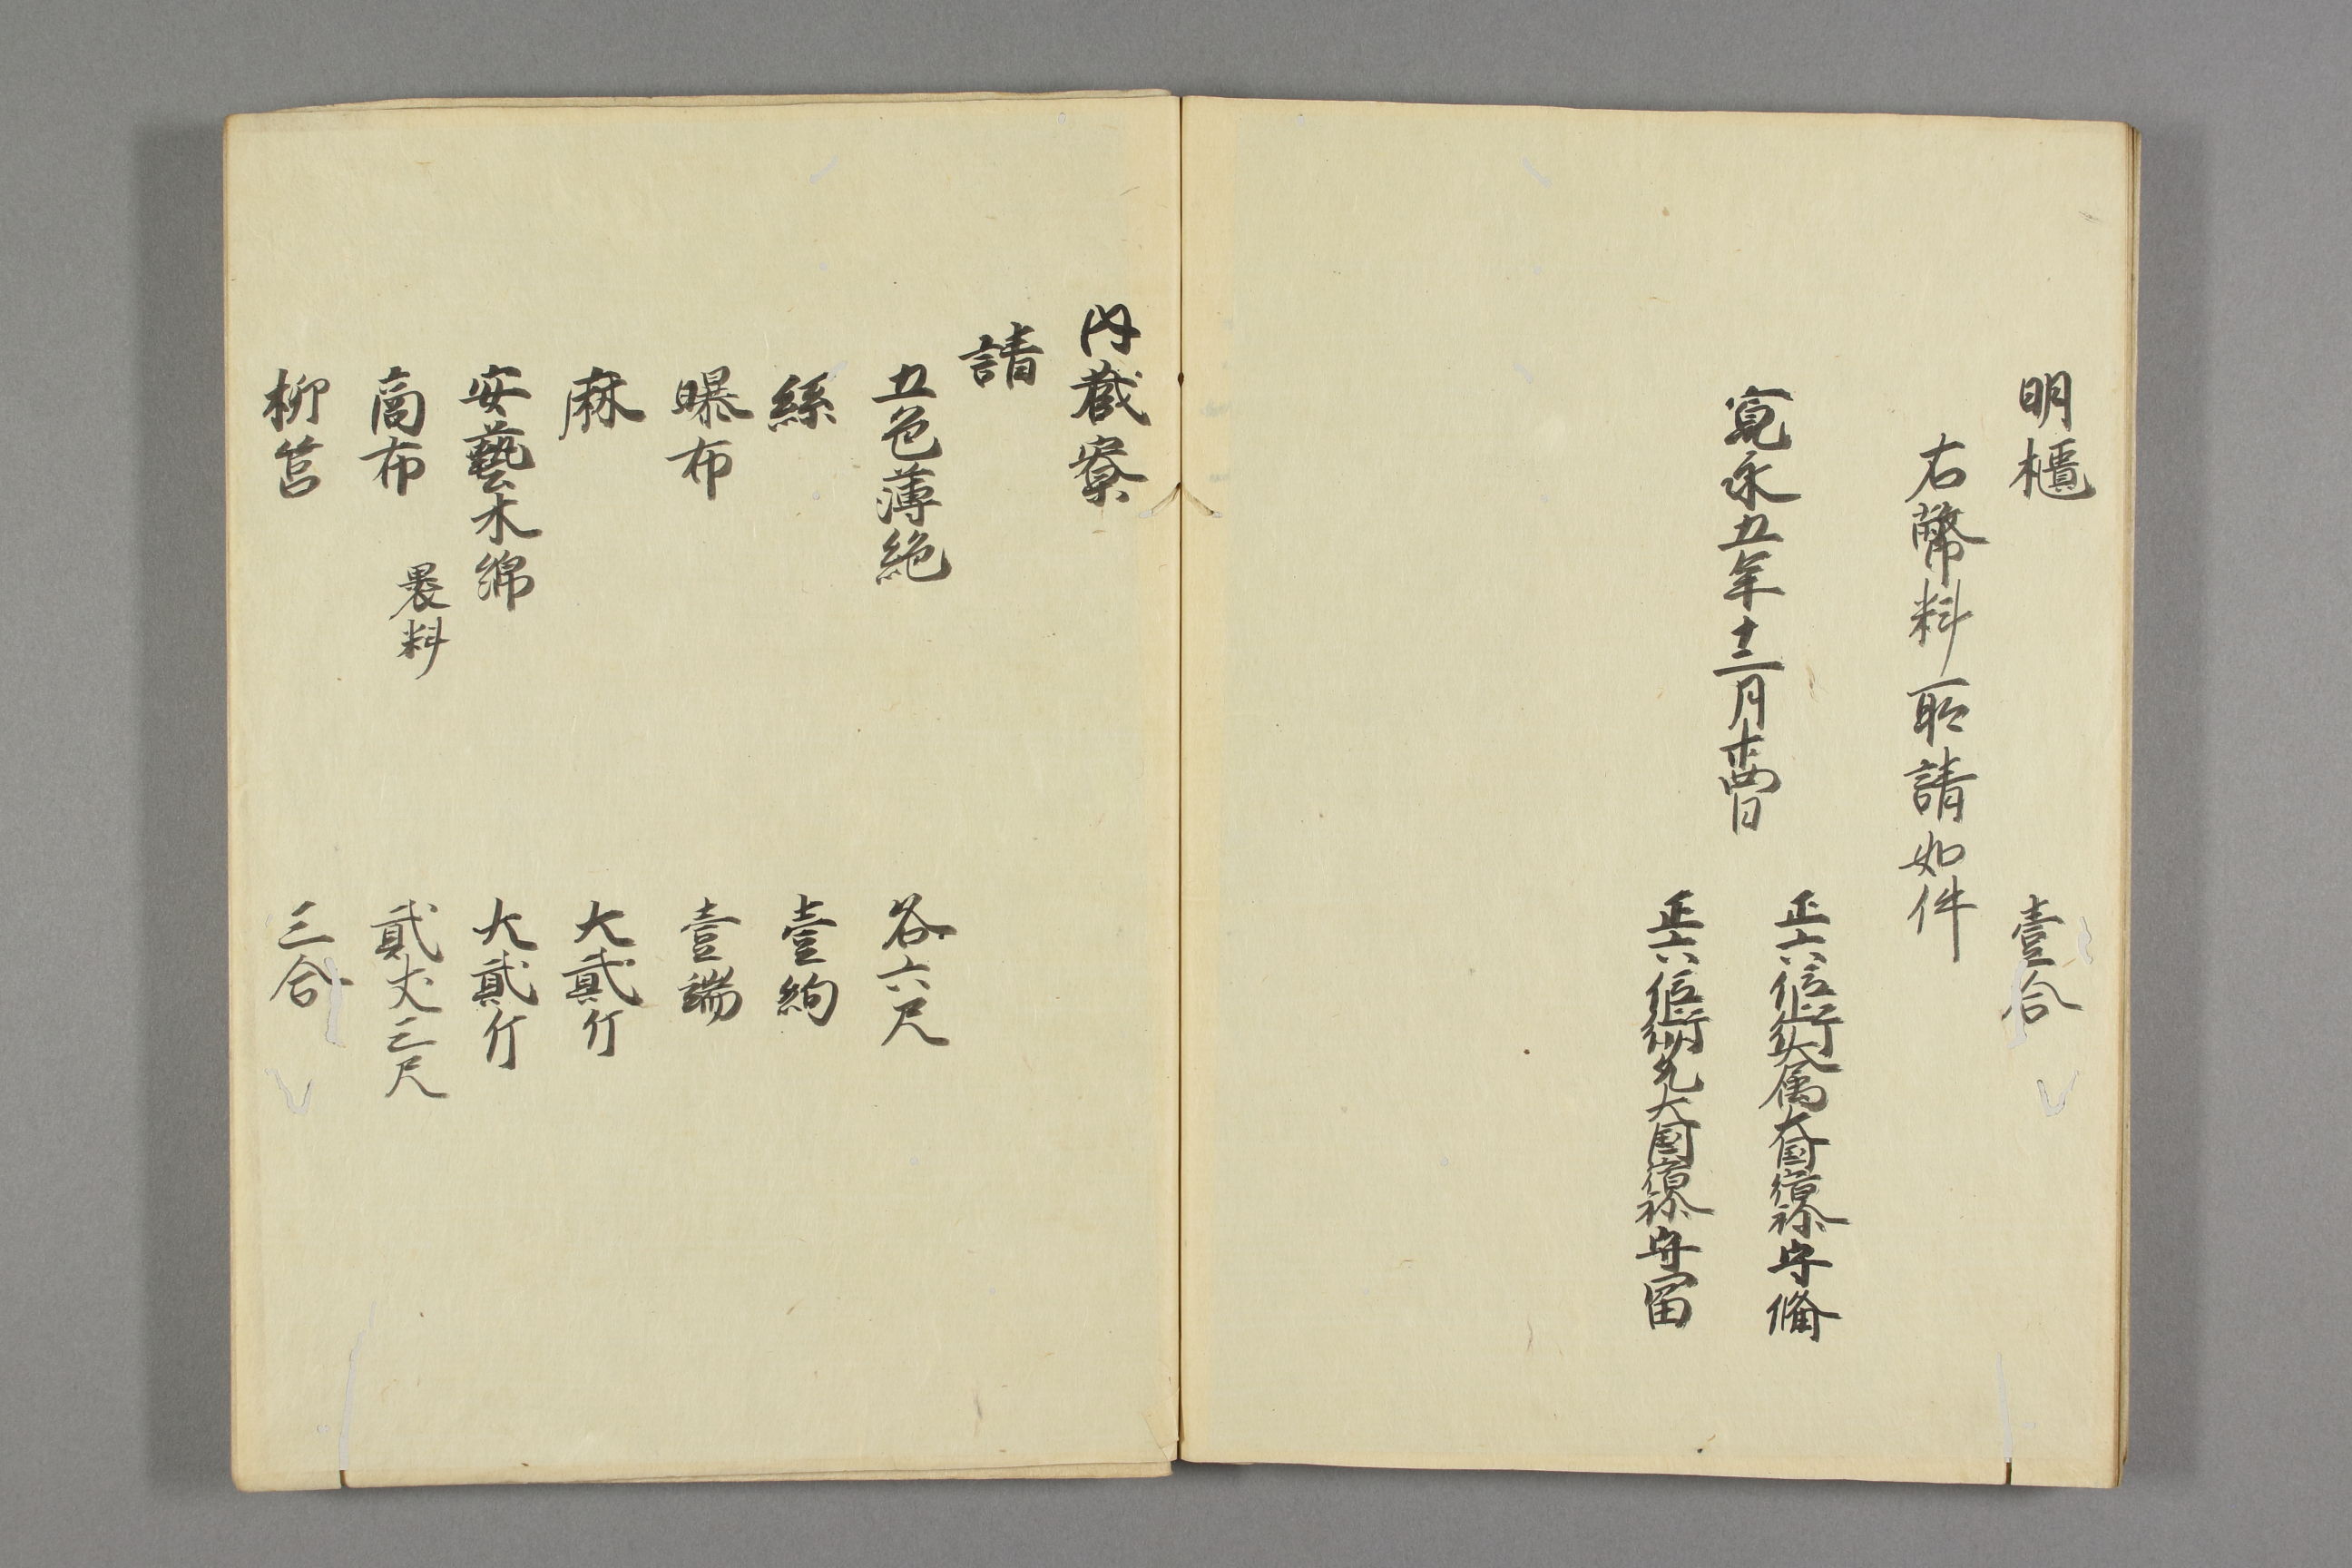 明櫃　壹合
右幣料所請如件
寛永五年十二月廿四日
正六位行大属大国宿祢守備
正六位行少允大国宿祢守冨
内蔵寮
請
五色薄絁　各六尺
絲　壹絇
曝布　壹端
麻　大貳斤
安藝木綿　大貳斤
商布　裹料　貳丈三尺
柳筥　三合